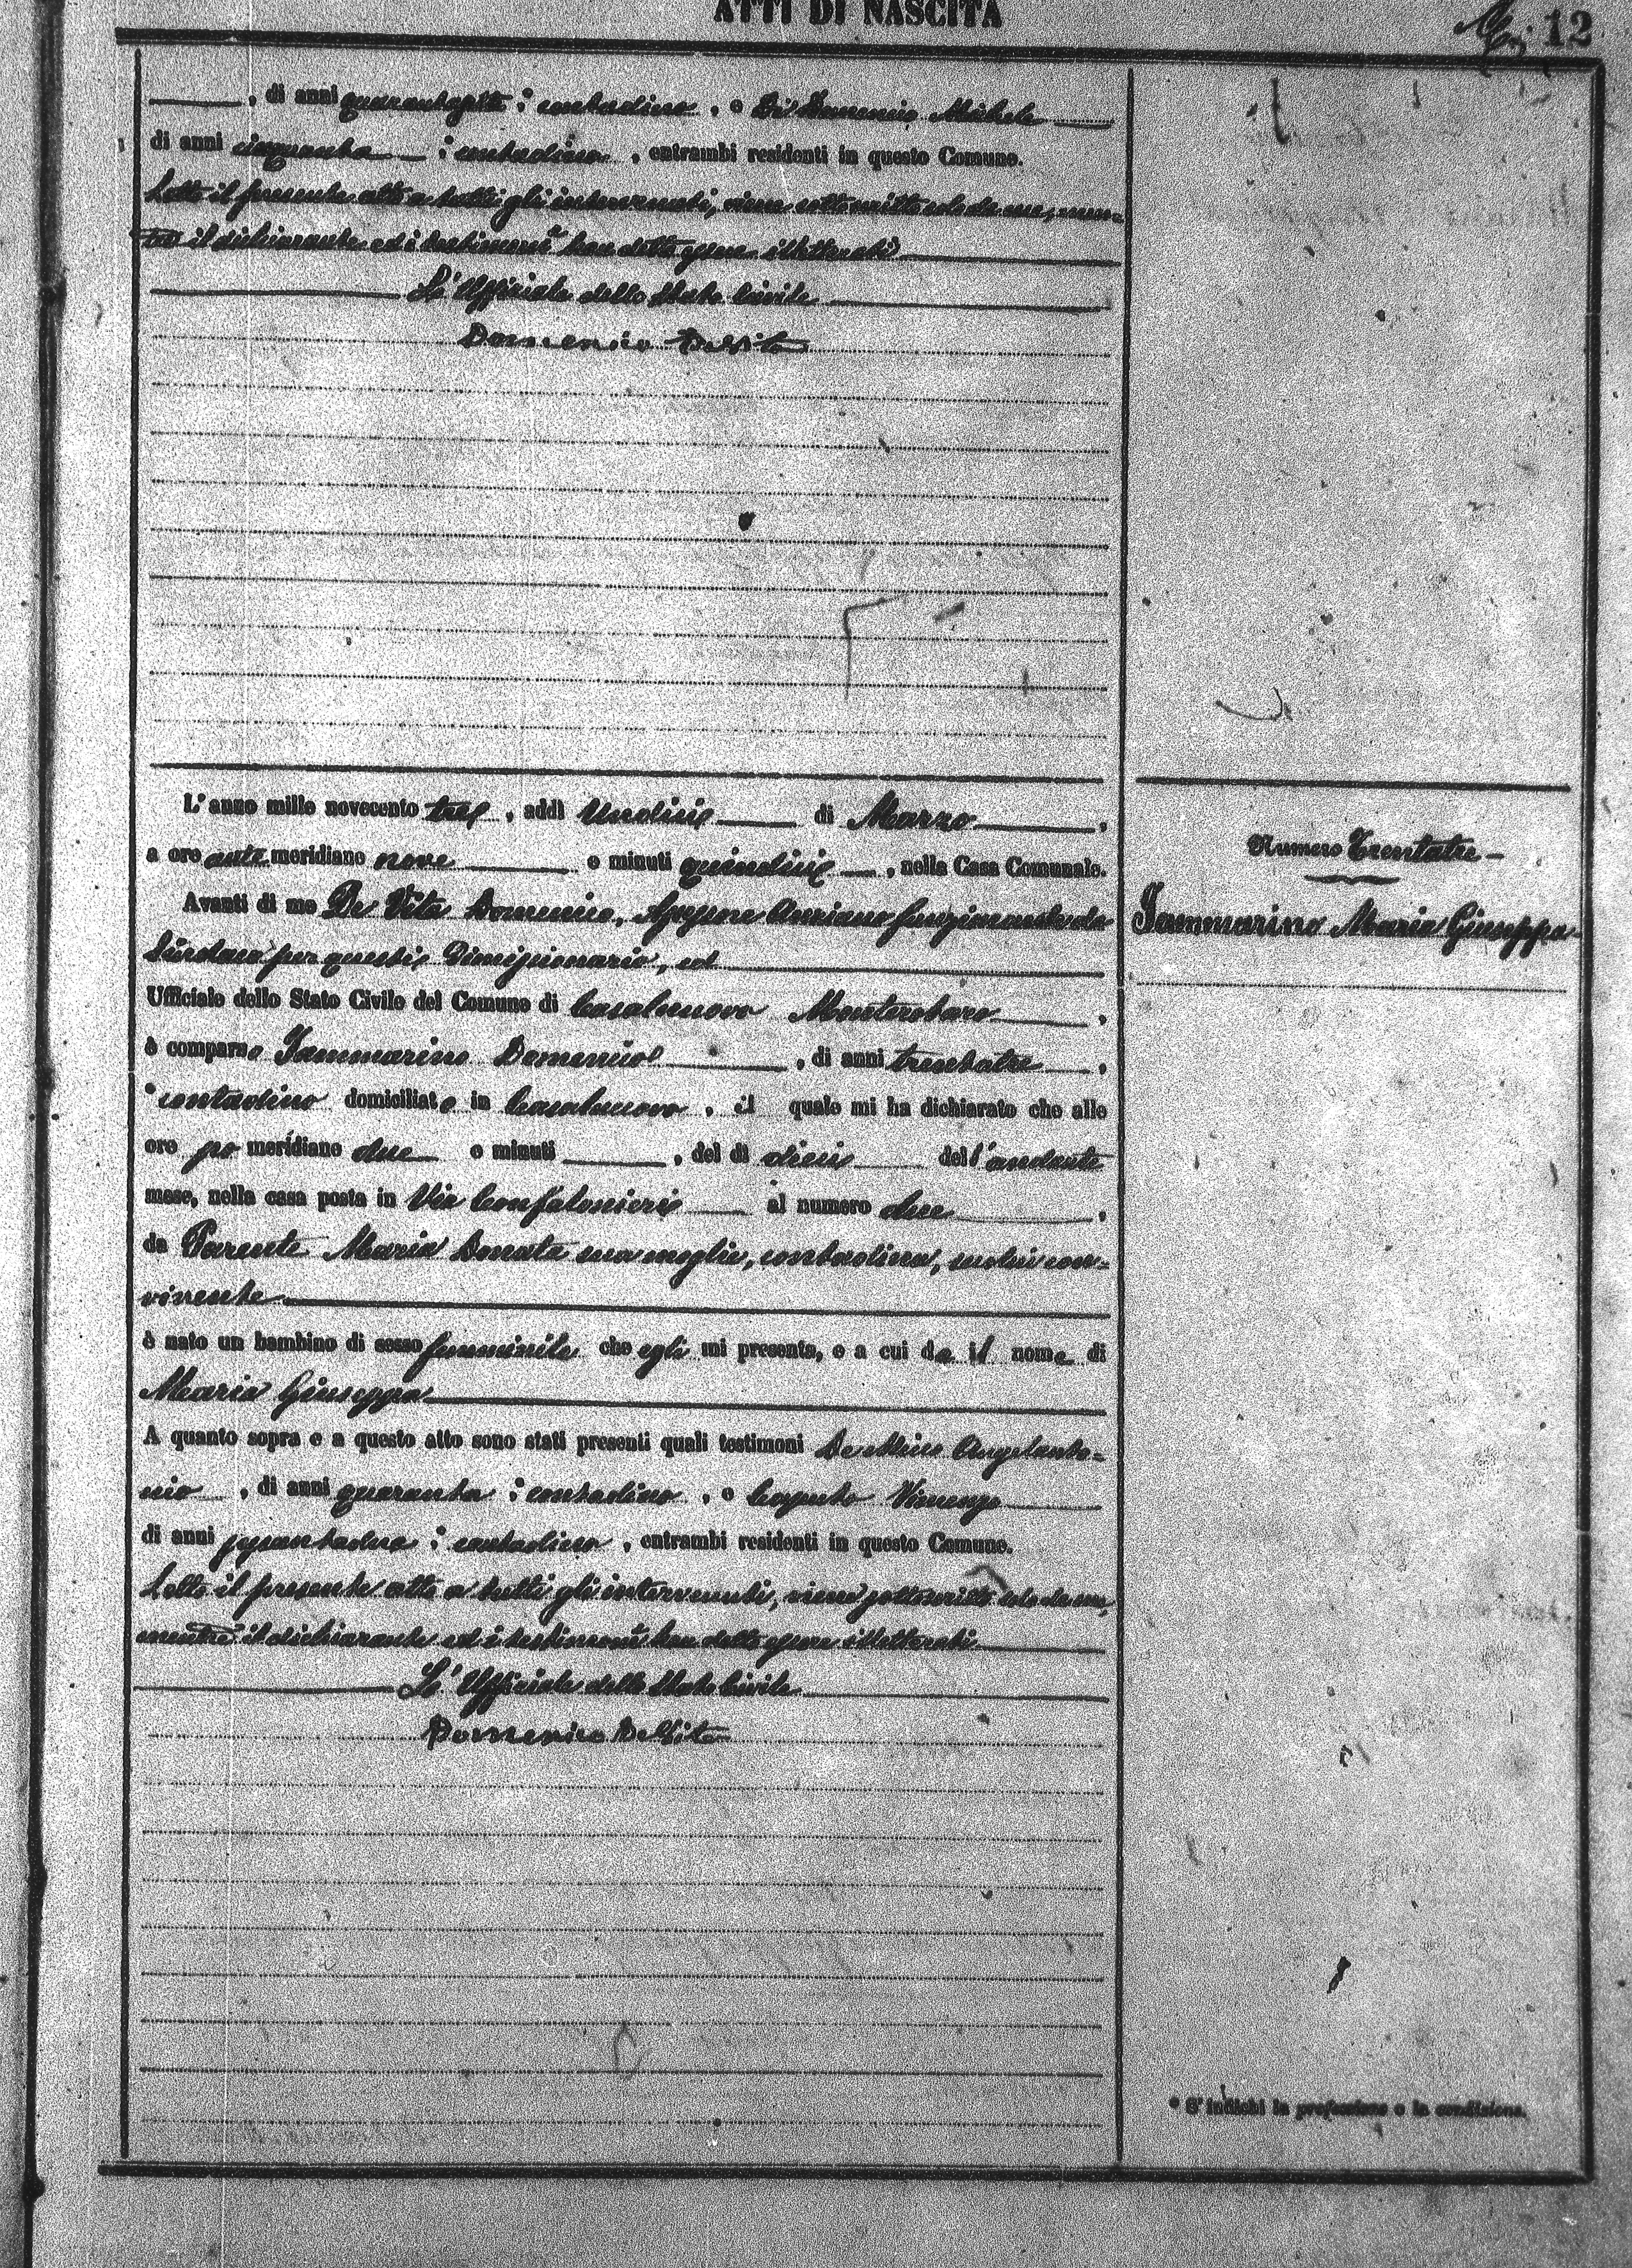 ATTI DI NASCITA
12
, di anni quarantasette, contadino, e Di Domenico Michele
di anni cinquanta, contadino, entrambi residenti in questo Comune.
Letto il presente atto a tutti gli intervenuti, viene sottoscritto solo da me, men-
tre il dichiarante ed i testimoni han detto essere illetterati
L'Ufficiale dello Stato Civile
Domenico De Vito
L'anno mille novecento tre, addì Undici di Marzo,
a ore ante meridiane nove e minuti quindici, nella Casa Comunale.
Numero Trentatre
Avanti di me De Vito Domenico, Assessore Anziano funzionante da
Iammarino Maria Giuseppa
Sindaco per questi Dimissionario, ed
Ufficiale dello Stato Civile del Comune di Casalnuovo Monterotaro,
è comparso Iammarino Domenico, di anni trentatre,
contadino domiciliato in Casalnuovo, il quale mi ha dichiarato che alle
ore pomeridiane due e minuti , del dì dieci dell'andante
mese, nella casa posta in Via Confalonieri al numero due,
da Parente Maria Donata sua moglie, contadina, seco lui con-
vivente
è nato un bambino di sesso femminile che egli mi presenta, e a cui da il nome di
Maria Giuseppa
A quanto sopra e a questo atto sono stati presenti quali testimoni Angelanto-
nio, di anni quaranta, contadino, e Vincenzo
di anni sessantadue, contadino, entrambi residenti in questo Comune.
Letto il presente atto a tutti gli intervenuti, viene sottoscritto solo da me,
mentre il dichiarante ed i testimoni han detto essere illetterati
L'Ufficiale dello Stato Civile
Domenico De Vito
* S'indichi la professione o la condizione.